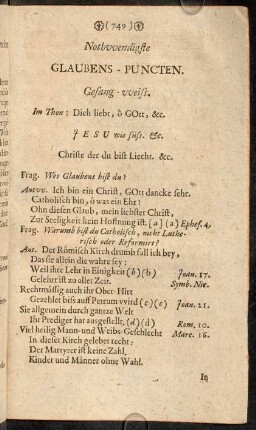 (749)
Nothvvendigste
GLAUBENS-PUNCTEN.
Gesang-vveiß.
Im Thon: Dich liebt, ô GOtt, &c.
JESU wie süß. &c.
Christe der du bist Liecht. &c.
Frag. Wes Glaubens bist du?
Antvv. Ich bin ein Christ, GOtt dancke sehr.
Catholisch bin, ô was ein Ehr?
Ohn diesen Glaub, mein liebster Christ,
Zur Seeligkeit kein Hoffnung ist. [a] (a) Ephes. 4.
Frag. Warumb bist du Catholisch, nicht Luthe-
risch oder Reformirt?
Ant. Der Römisch Kirch drumb fall ich bey,
Das sie allein die wahre sey;
Weil ihre Lehr in Einigkeit (b) (b) Joan. 17.
Gelehrt ist zu aller Zeit. Symb. Nic.
Rechtmässig auch ihr Ober-Hirt
Gezehlet biß auff Petrum vvird (c) (c) Joan. 21.
Sie allgemein durch gantze Welt
Ihr Prediger hat ausgestellt, (d) (d) Rom. 10.
Viel heilig Mann- und Weibs-Geschlecht Marc. 16.
In dieser Kirch gelebet recht:
Der Martyrer ist keine Zahl,
Kinder und Männer ohne Wahl.
In